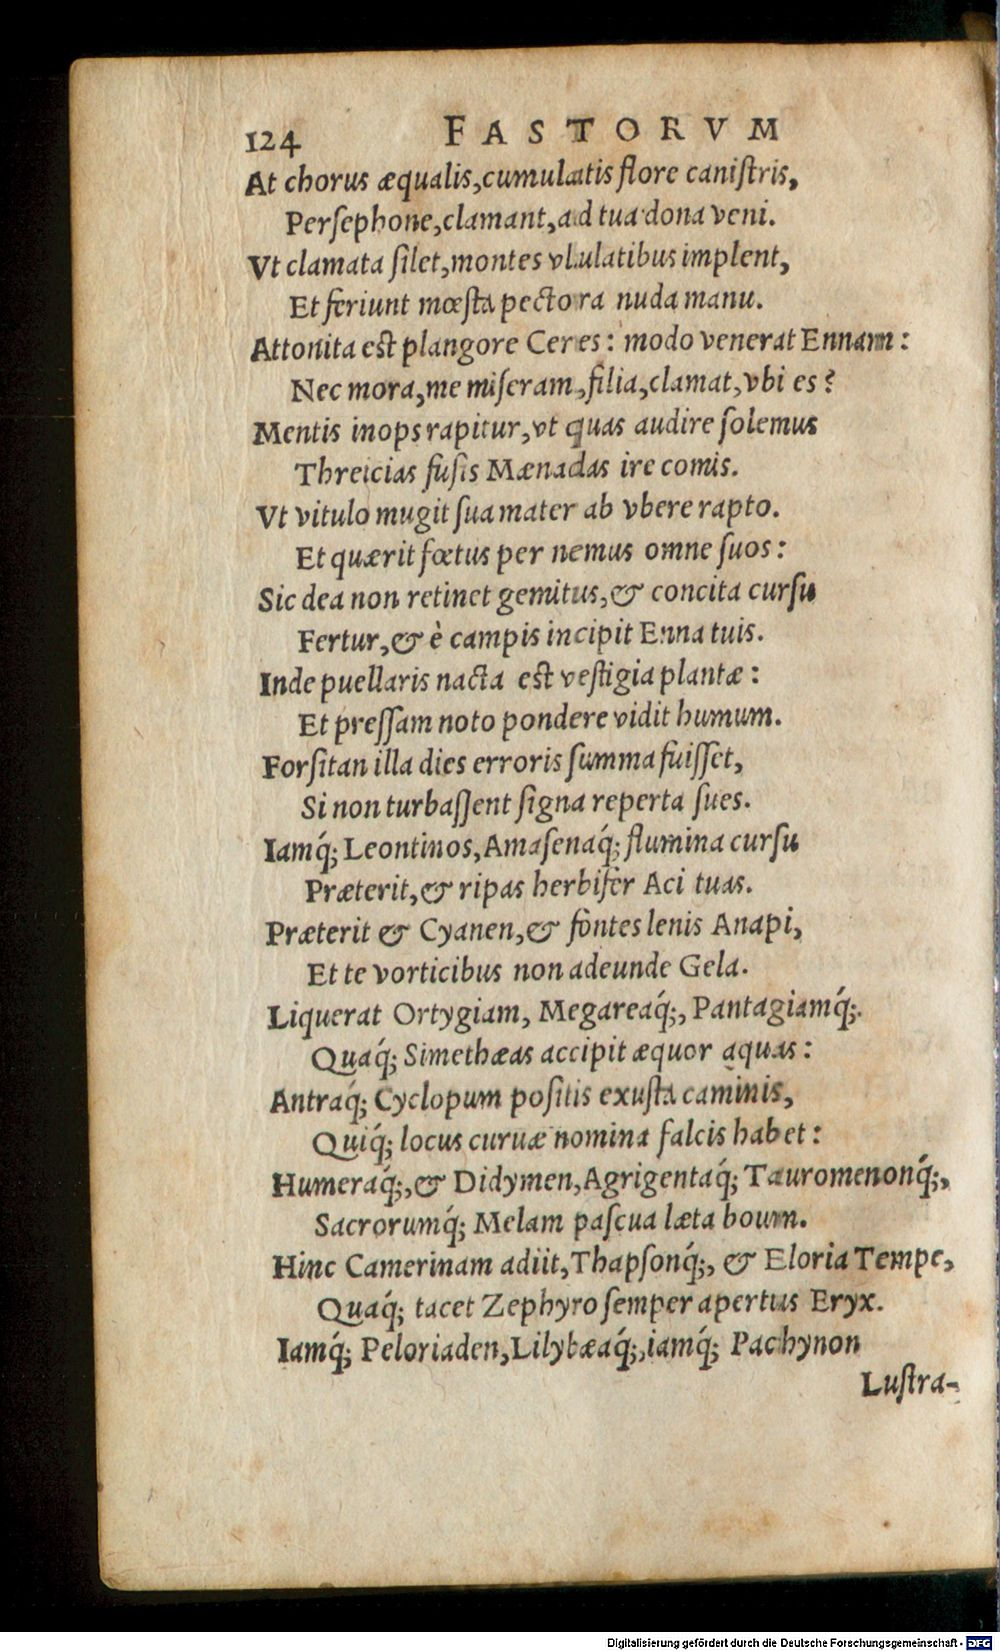 124 FASTORVM
At chorus æqualis,cumulatis flore caniſtris,
Perſephone,clamant,ad tua dona veni.
Vt clamata ſilet,montes vlulatibus implent,
Et feriunt mœſta pectora nuda manu.
Attonita est plangore Ceres: modo venerat Ennam:
Nec mora,me miſeram,filia,clamat,vbi es?
Mentis inops rapitur,vt quas audire ſolemus
Threicias fuſis Mænadas ire comis.
Vt vitulo mugit ſua mater ab vbere rapto.
Et quærit fœtus per nemus omne ſuos:
Sic dea non retinet gemitus,& concita curſu
Fertur,& è campis incipit Enna tuis.
Inde puellaris nacta est veſtigia plantæ:
Et preſſam noto pondere vidit humum.
Forſitan illa dies erroris ſumma fuiſſet,
Si non turbaſſent ſigna reperta ſues.
Iamq́; Leontinos,Amaſenaq́; flumina curſu
Præterit,& ripas herbifer Aci tuas.
Præterit & Cyanen,& fontes lenis Anapi,
Et te vorticibus non adeunde Gela.
Liquerat Ortygiam, Megareaq́;, Pantagiamq́;.
Quaq́; Simethæas accipit æquor aquas:
Antraq́; Cyclopum poſitis exuſta caminis,
Quiq́; locus curuæ nomina falcis habet:
Humeraq́;,& Didymen,Agrigentaq́; Tauromenonq́;,
Sacrorumq́; Melam paſcua læta boum.
Hinc Camerinam adiit,Thapſonq́;, & Eloria Tempe,
Quaq́; tacet Zephyro ſemper apertus Eryx.
Iamq́; Peloriaden,Lilybæaq́;,iamq́; Pachynon
Luſtra-
Digitalisierung gefördert durch die Deutsche Forschungsgemeinschaft - DFG